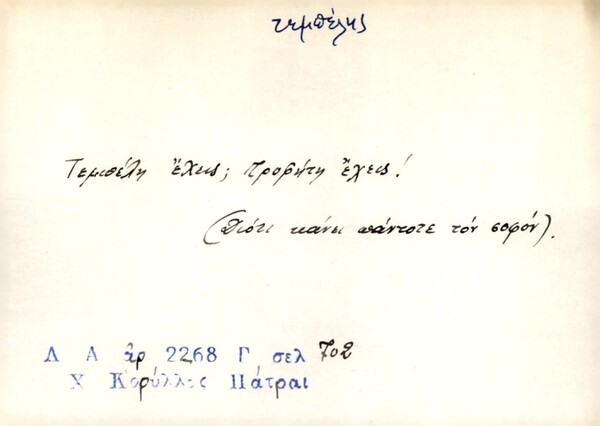 τεμπέλης
Τεμπέλη ἔχεις; Προφήτη ἔχεις!
(Διότι κάνει πάντοτε τόν σοφόν).
Λ Α ἀρ 2268 Γ σελ 702
Χ Κορύλλος Πάτραι